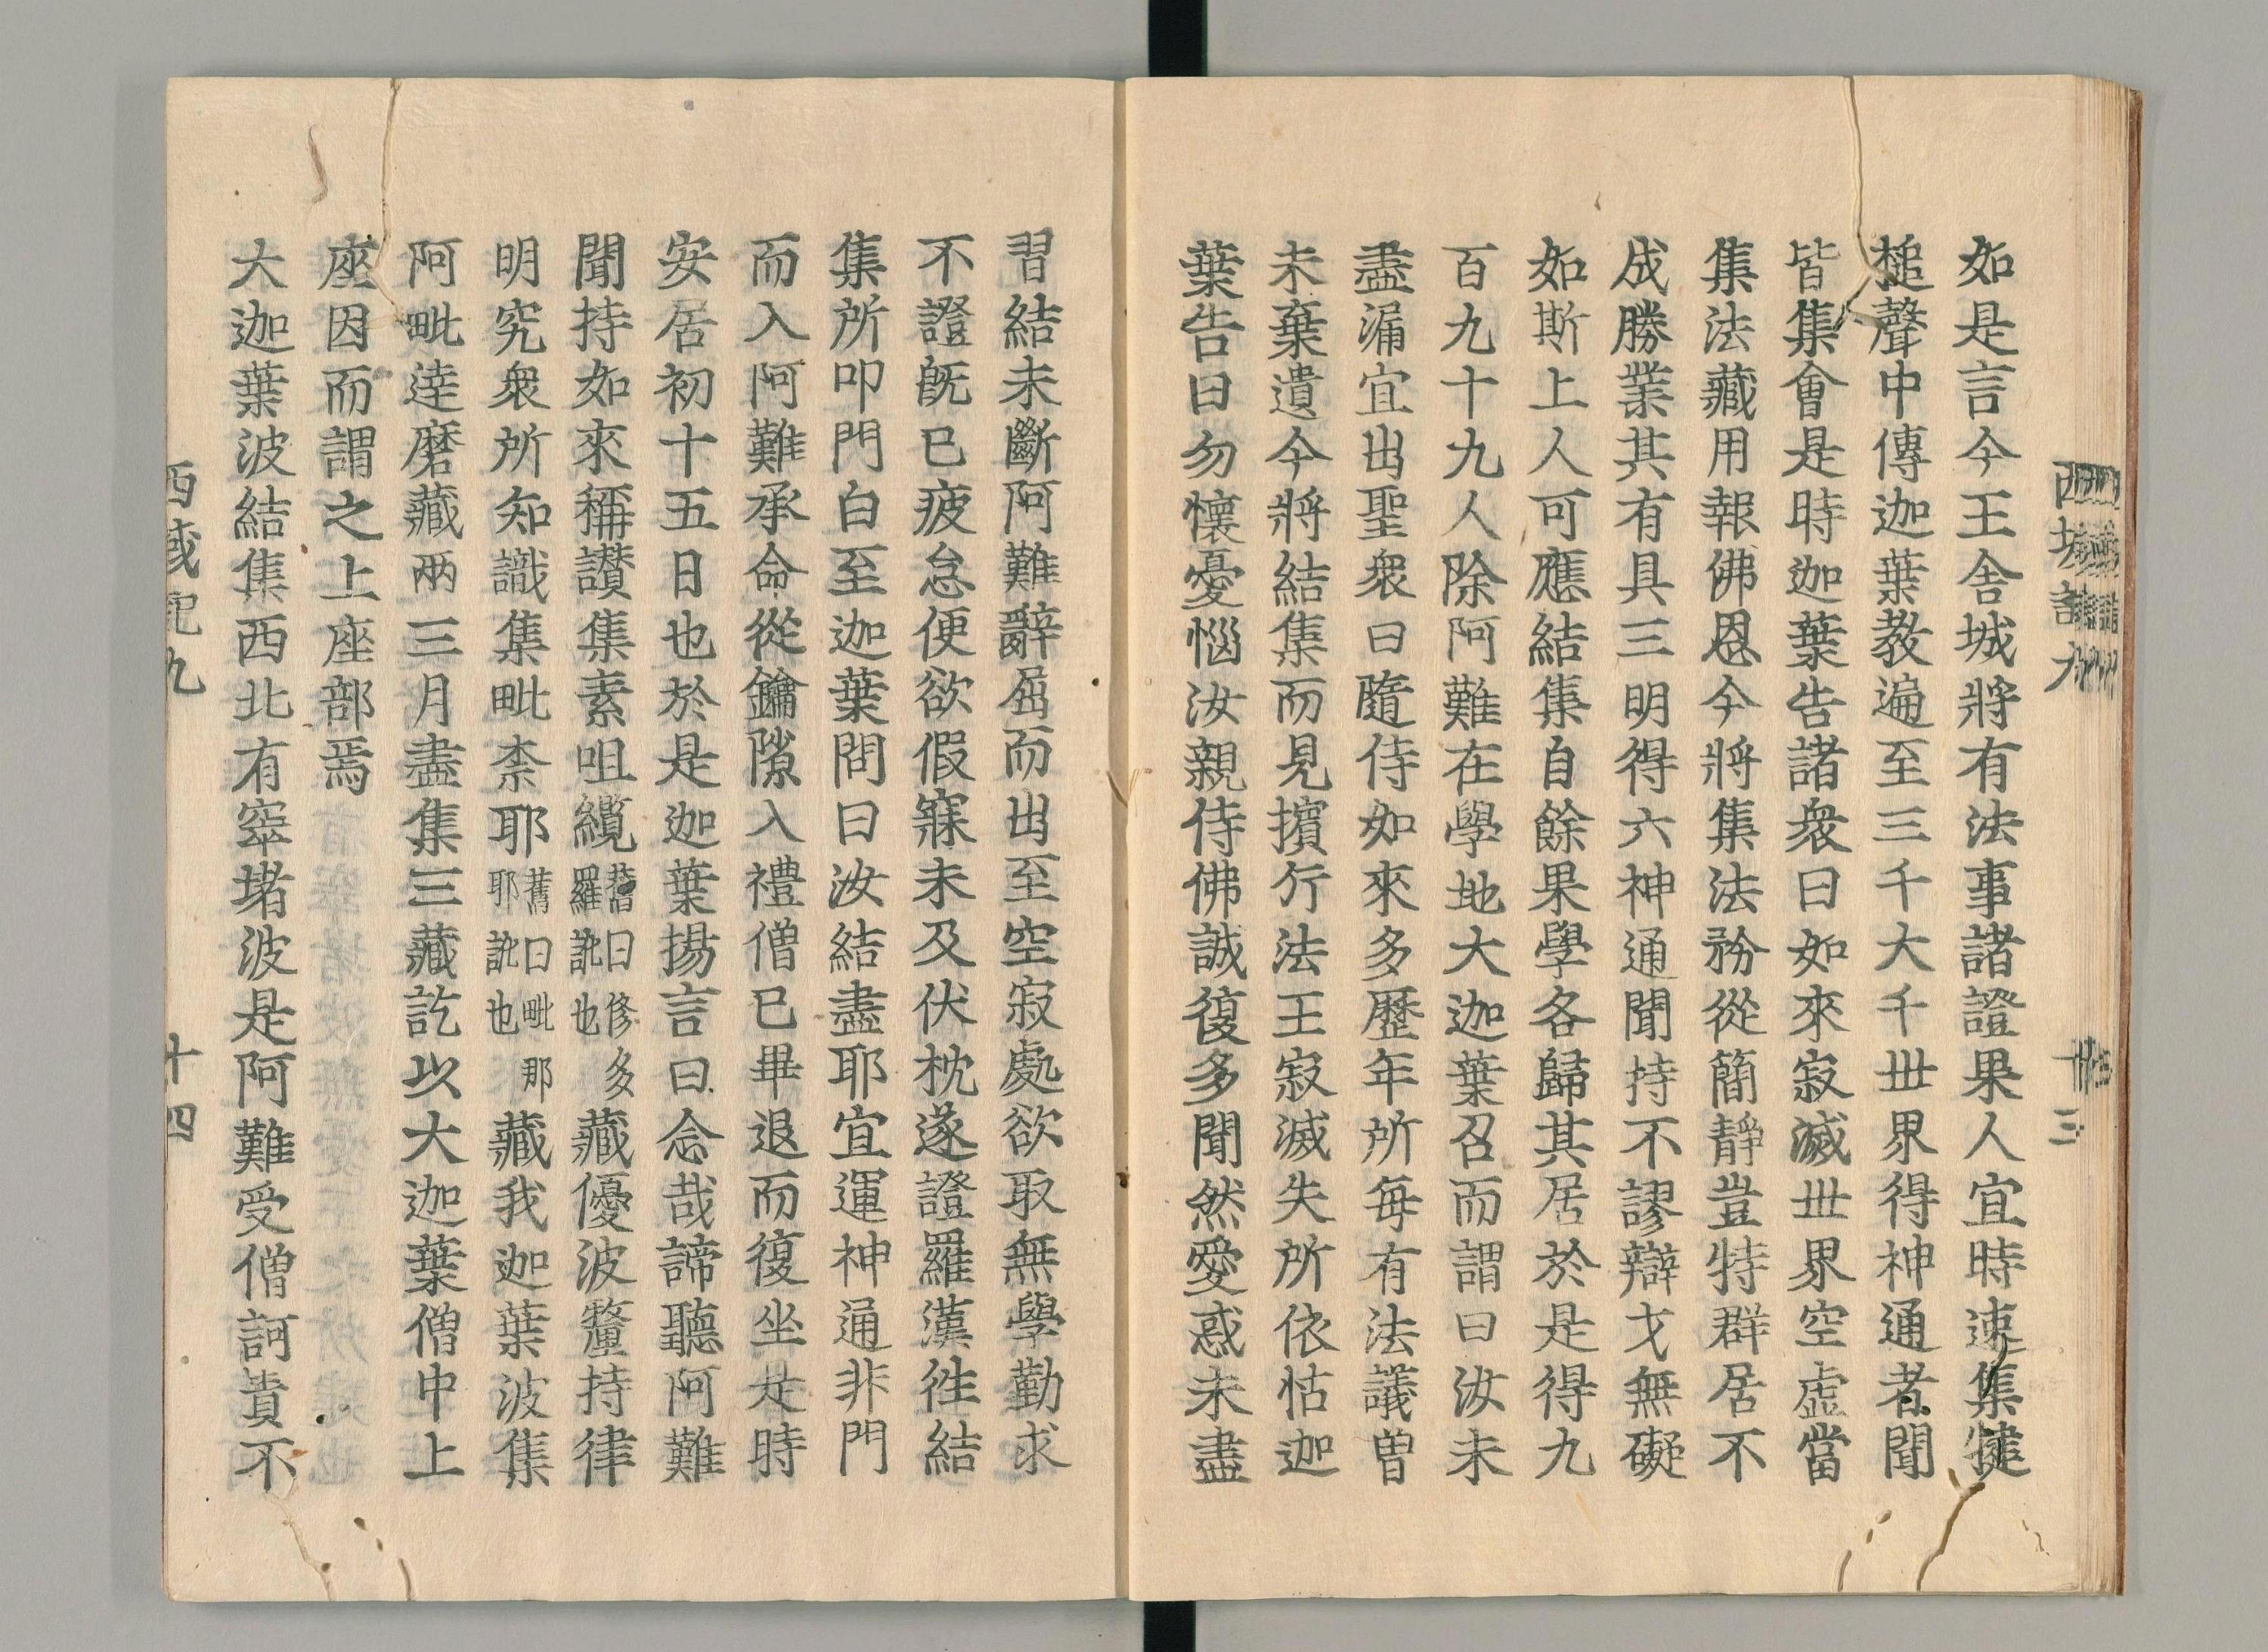 西域記九
十三
如是言今王舍城將有法事諸證果人宜時速集揵
槌聲中傳迦葉教遍至三千大千丗界得神通者聞
皆集會是時迦葉告諸衆曰如來寂滅丗界空虛當
集法藏用報佛恩今將集法務從簡靜豈特群居不
成勝業其有具三明得六神通聞持不謬辯才無礙
如斯上人可應結集自餘果學各歸其居於是得九
百九十九人除阿難在學地大迦葉召而謂曰汝未
盡漏宜出聖衆曰隨侍如來多歷年所每有法議曾
未棄遺今將結集而見擯行法王寂滅失所依怙迦
葉告曰勿懷憂惱汝親侍佛誠復多聞然愛惑未盡
習結未斷阿難辭屈而出至空寂處欲取無學勤求
不證旣已疲怠便欲假寐未及伏枕遂證羅漢徃結
集所叩門白至迦葉問曰汝結盡耶宜運神通非門
而入阿難承命從鑰隙入禮僧已畢退而復坐是時
安居初十五日也於是迦葉揚言曰念哉諦聽阿難
聞持如來稱讚集素呾纜舊曰修多羅訛也藏優波釐持律
明究衆所知識集毗柰耶舊曰毗那耶訛也藏我迦葉波集
阿毗達磨藏兩三月盡集三藏訖以大迦葉僧中上
座因而謂之上座部焉
大迦葉波結集西北有窣堵波是阿難受僧訶責不
西域記九
十四